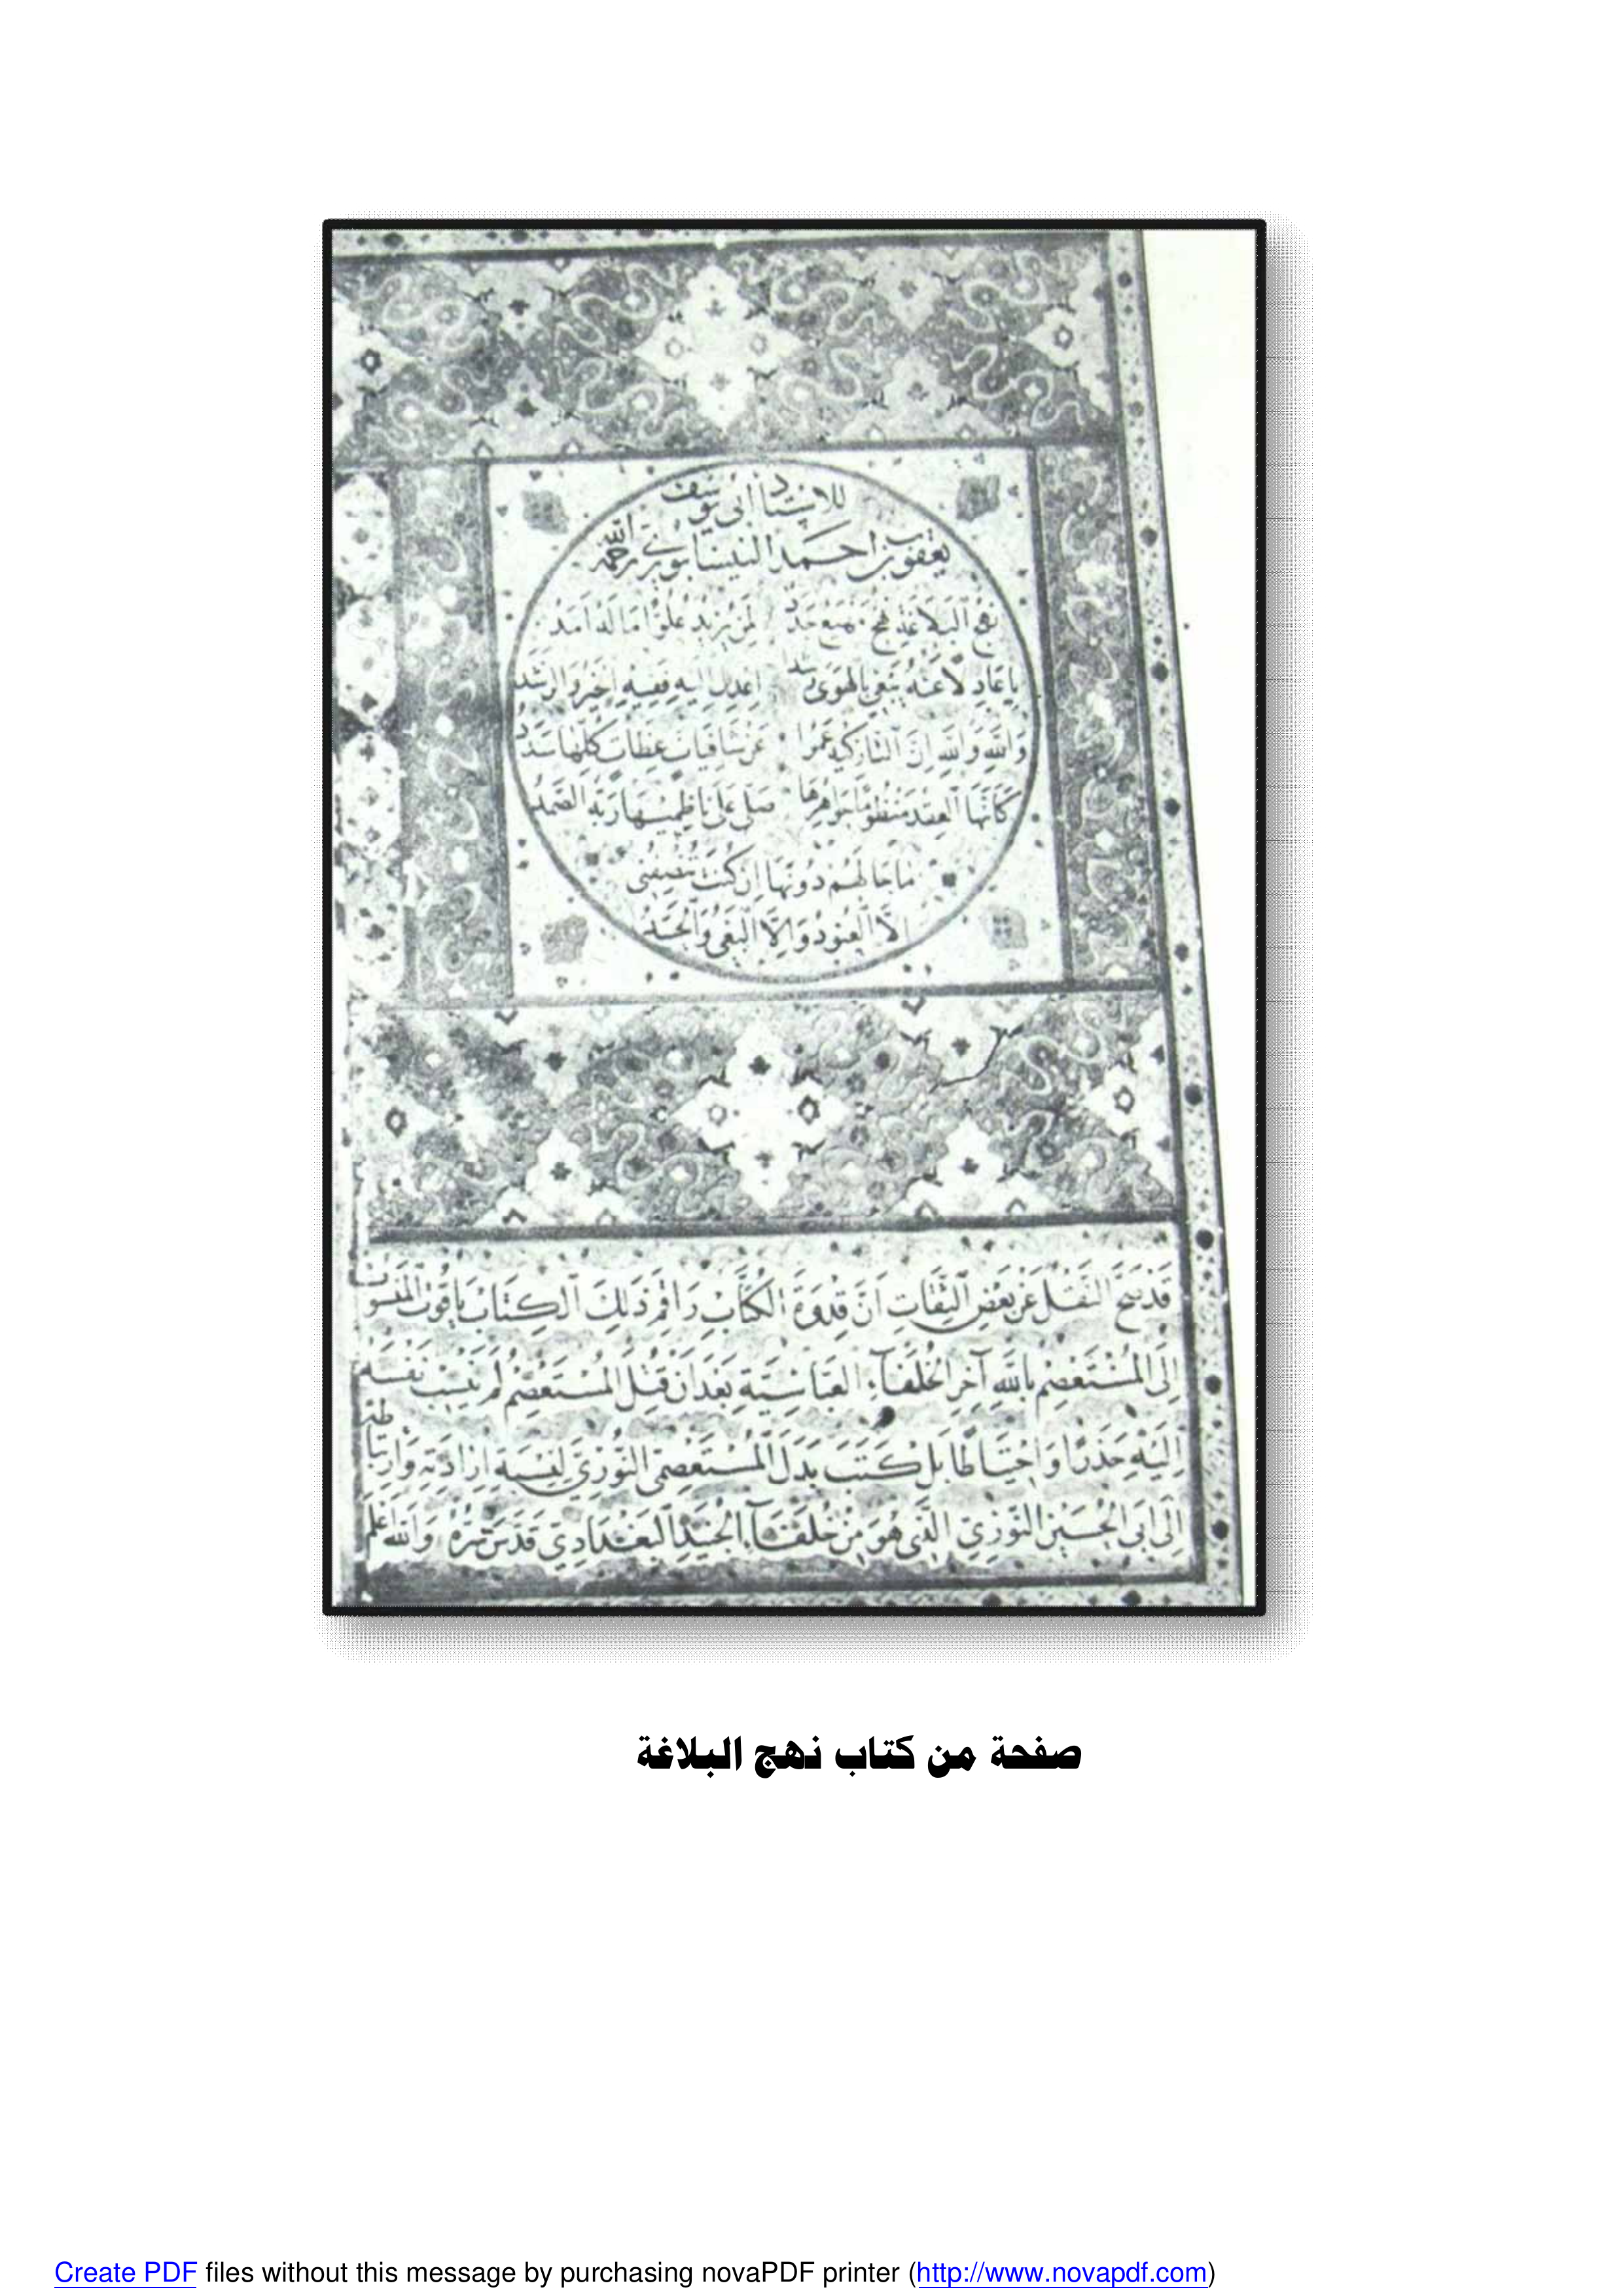 للاستاد ابى يوسف
يعقوب بن احمد النيسابورى رحمه الله
نهج البلاغة نهج مهيع جدد لمن يريد علوا ما له امد
يا عادلا عنه تبغى بالهوى رشدا اعدل اليه ففيه الخير والرشد
والله والله ان التاركيه عموا عن شافيات عظات كلها سدد
كانها العقد منظوما جواهرها صلى على ناظميها ربه الصمد
ما حالهم دونها ان كنت تنصفنى
الا العنود والا البغى والحسد
قَدْ صَحَّ النَّقْلُ عَنْ بَعْضِ الثِّقَاتِ اَنَّ قِدْوَةَ الكُتَّابِ رَاقِمَ ذَلِكَ الكِتَابِ يَاقُوت المَنْسُوب
اِلَى المُسْتَعْصِمِ بِاللَّهِ آخِرِ الخُلَفَآءِ العَبَّاسِيَّةِ بَعْدَ اَنْ قُتِلَ المُسْتَعْصِمُ لَمْ يَنْسِبْ نَفْسَهُ
اِلَيْهِ حَذَرًا وَاحْتِيَاطًا بَلْ كَتَبَ بَدَلَ المُسْتَعْصِمِى النُّورِىّ لِنِسْبَةِ اِرَادَتِهِ وَارْتِبَاطِهِ
اِلَى اَبِى الحُسَيْنِ النُّورِىّ الَّذِى هُوَ مِنْ خُلَفَآءِ الجُنَيْدِ البَغْدَادِىّ قَدَّسَ سِرَّهُ وَاللهُ اَعْلَم
صفحة من كتاب نهج البلاغة
Create PDF files without this message by purchasing novaPDF printer (http://www.novapdf.com)